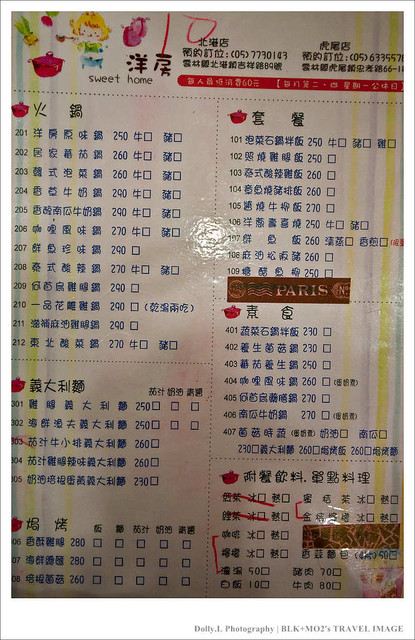 10
洋房
sweet home
北港店
預約訂位:(05)7730143
雲林縣北港鎮吉祥路89號
虎尾店
預約訂位:(05)633557
雲林縣虎尾鎮忠孝路66-1
每人最低消費60元
火 鍋
201 洋房原味鍋 250 牛□ 豬□
202 居家蕃茄鍋 260 牛□ 豬□
203 韓式泡菜鍋 260 牛□ 豬□
204 香蔥牛奶鍋 290 牛□ 豬□
205 香醇南瓜牛奶鍋 290 牛□ 豬□
206 咖哩風味鍋 270 牛□ 豬□
207 鮮魚珍味鍋 290 □
208 泰式酸辣鍋 270 牛□ 豬□
209 何首烏雞腿鍋 290 □
210 一品花雕雞鍋 290 □ (乾湯兩吃)
211 滋補麻油雞腿鍋 290 □
212 東北酸菜鍋 270 牛□ 豬□
套 餐
101 泡菜石鍋拌飯 250 牛□ 豬□ 雞□
102 照燒雞腿飯 250 □
103 泰式酸辣雞飯 260 □
104 章魚燒豬排飯 260 □
105 醬燒牛柳飯 270 □
106 洋蔥壽喜燒 250 牛□ 豬□
107 鮮魚飯 260 清蒸□ 香煎□
108 麻油松阪豬 260 □
109 糖醋魚柳 250 □
PARIS
素 食
401 蔬菜石鍋拌飯 230 □
402 養生菌菇鍋 230 □
403 蕃茄養生鍋 250 □
404 咖哩風味鍋 260 □ (蛋奶素)
405 何首烏藥膳鍋 270 □
406 南瓜牛奶鍋 270 □ (蛋奶素)
407 菌菇時蔬 (蛋奶素) 奶油□ 南瓜□
230□義大利麵 260□焗烤飯 260□焗烤麵
義大利麵
茄汁 奶油 清醬
301 雞腿義大利麵 250 □ □ □
302 海鮮漁夫義大利麵 250 □ □ □
303 茄汁牛小排義大利麵 260 □
304 茄汁雞腿辣味義大利麵 260 □
305 奶油培根蛋黃義大利麵 230 □
焗 烤
飯 麵 茄汁 奶油 清醬
306 香酥雞腿 280 □ □ □ □ □
307 海鮮總匯 280 □ □ □ □ □
308 培根蘑菇 260 □ □ □ □ □
附餐飲料.單點料理
紅茶 冰□ 熱□
綠茶 冰□ 熱□
咖啡 冰□ 熱□
檸檬 冰□ 熱□
蜜桔茶 冰□ 熱□
金桔檸檬 冰□ 熱□
香蒜麵包 (4片) 50□
湯 50□
豬肉 70□
白飯 10□
牛肉 80□
Dolly.L Photography | BLK+MO2's TRAVEL IMAGE